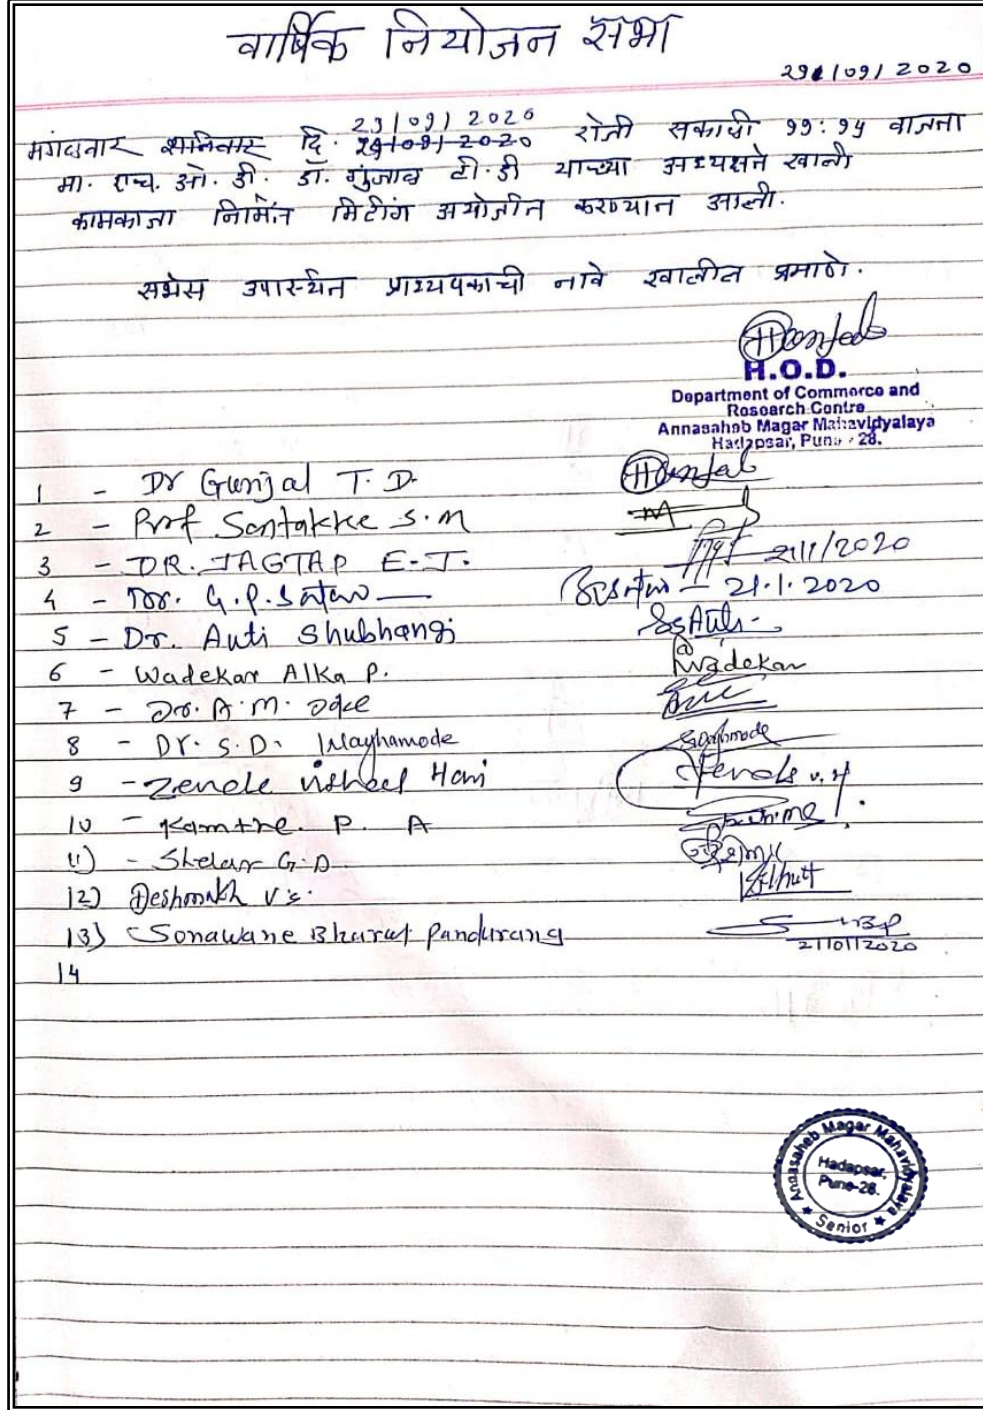 वार्षिक नियोजन सभा
२१/०१/२०२०
मंगळवार शनिवार दि. २१/०१/२०२० रोजी सकाळी ११:१५ वाजता
मा. एच. ओ. डी. डॉ. गुंजाळ टी. डी याच्या अध्यक्षते खाली
कामकाजा निमित्त मिटींग अयोजीत करण्यात आली.
सभेस उपस्थित प्राध्यपकाची नावे खालील प्रमाणे.
H.O.D.
Department of Commerce and
Research Centre
Annasaheb Magar Mahavidyalaya
Hadapsar, Pune - 28.
1 - Dr Gunjal T. D.
2 - Prof Sontakke S. M
3 - DR. JAGTAP E. J. 21/1/2020
4 - Dr. G. P. Satav — 21.1.2020
5 - Dr. Auti Shubhangi
6 - Wadekar Alka P. Wadekar
7 - Dr. A. M.
8 - Dr. S. D. Waghamode
9 - Zende Vishal Hari Zende V. H
10 - Kamthe. P. A
11) - Shelar G. D.
12) Deshmukh V S.
13) Sonawane Bharat Pandurang 21/01/2020
14
Annasaheb Magar Mahavidyalaya
Hadapsar,
Pune-28.
★ Senior ★